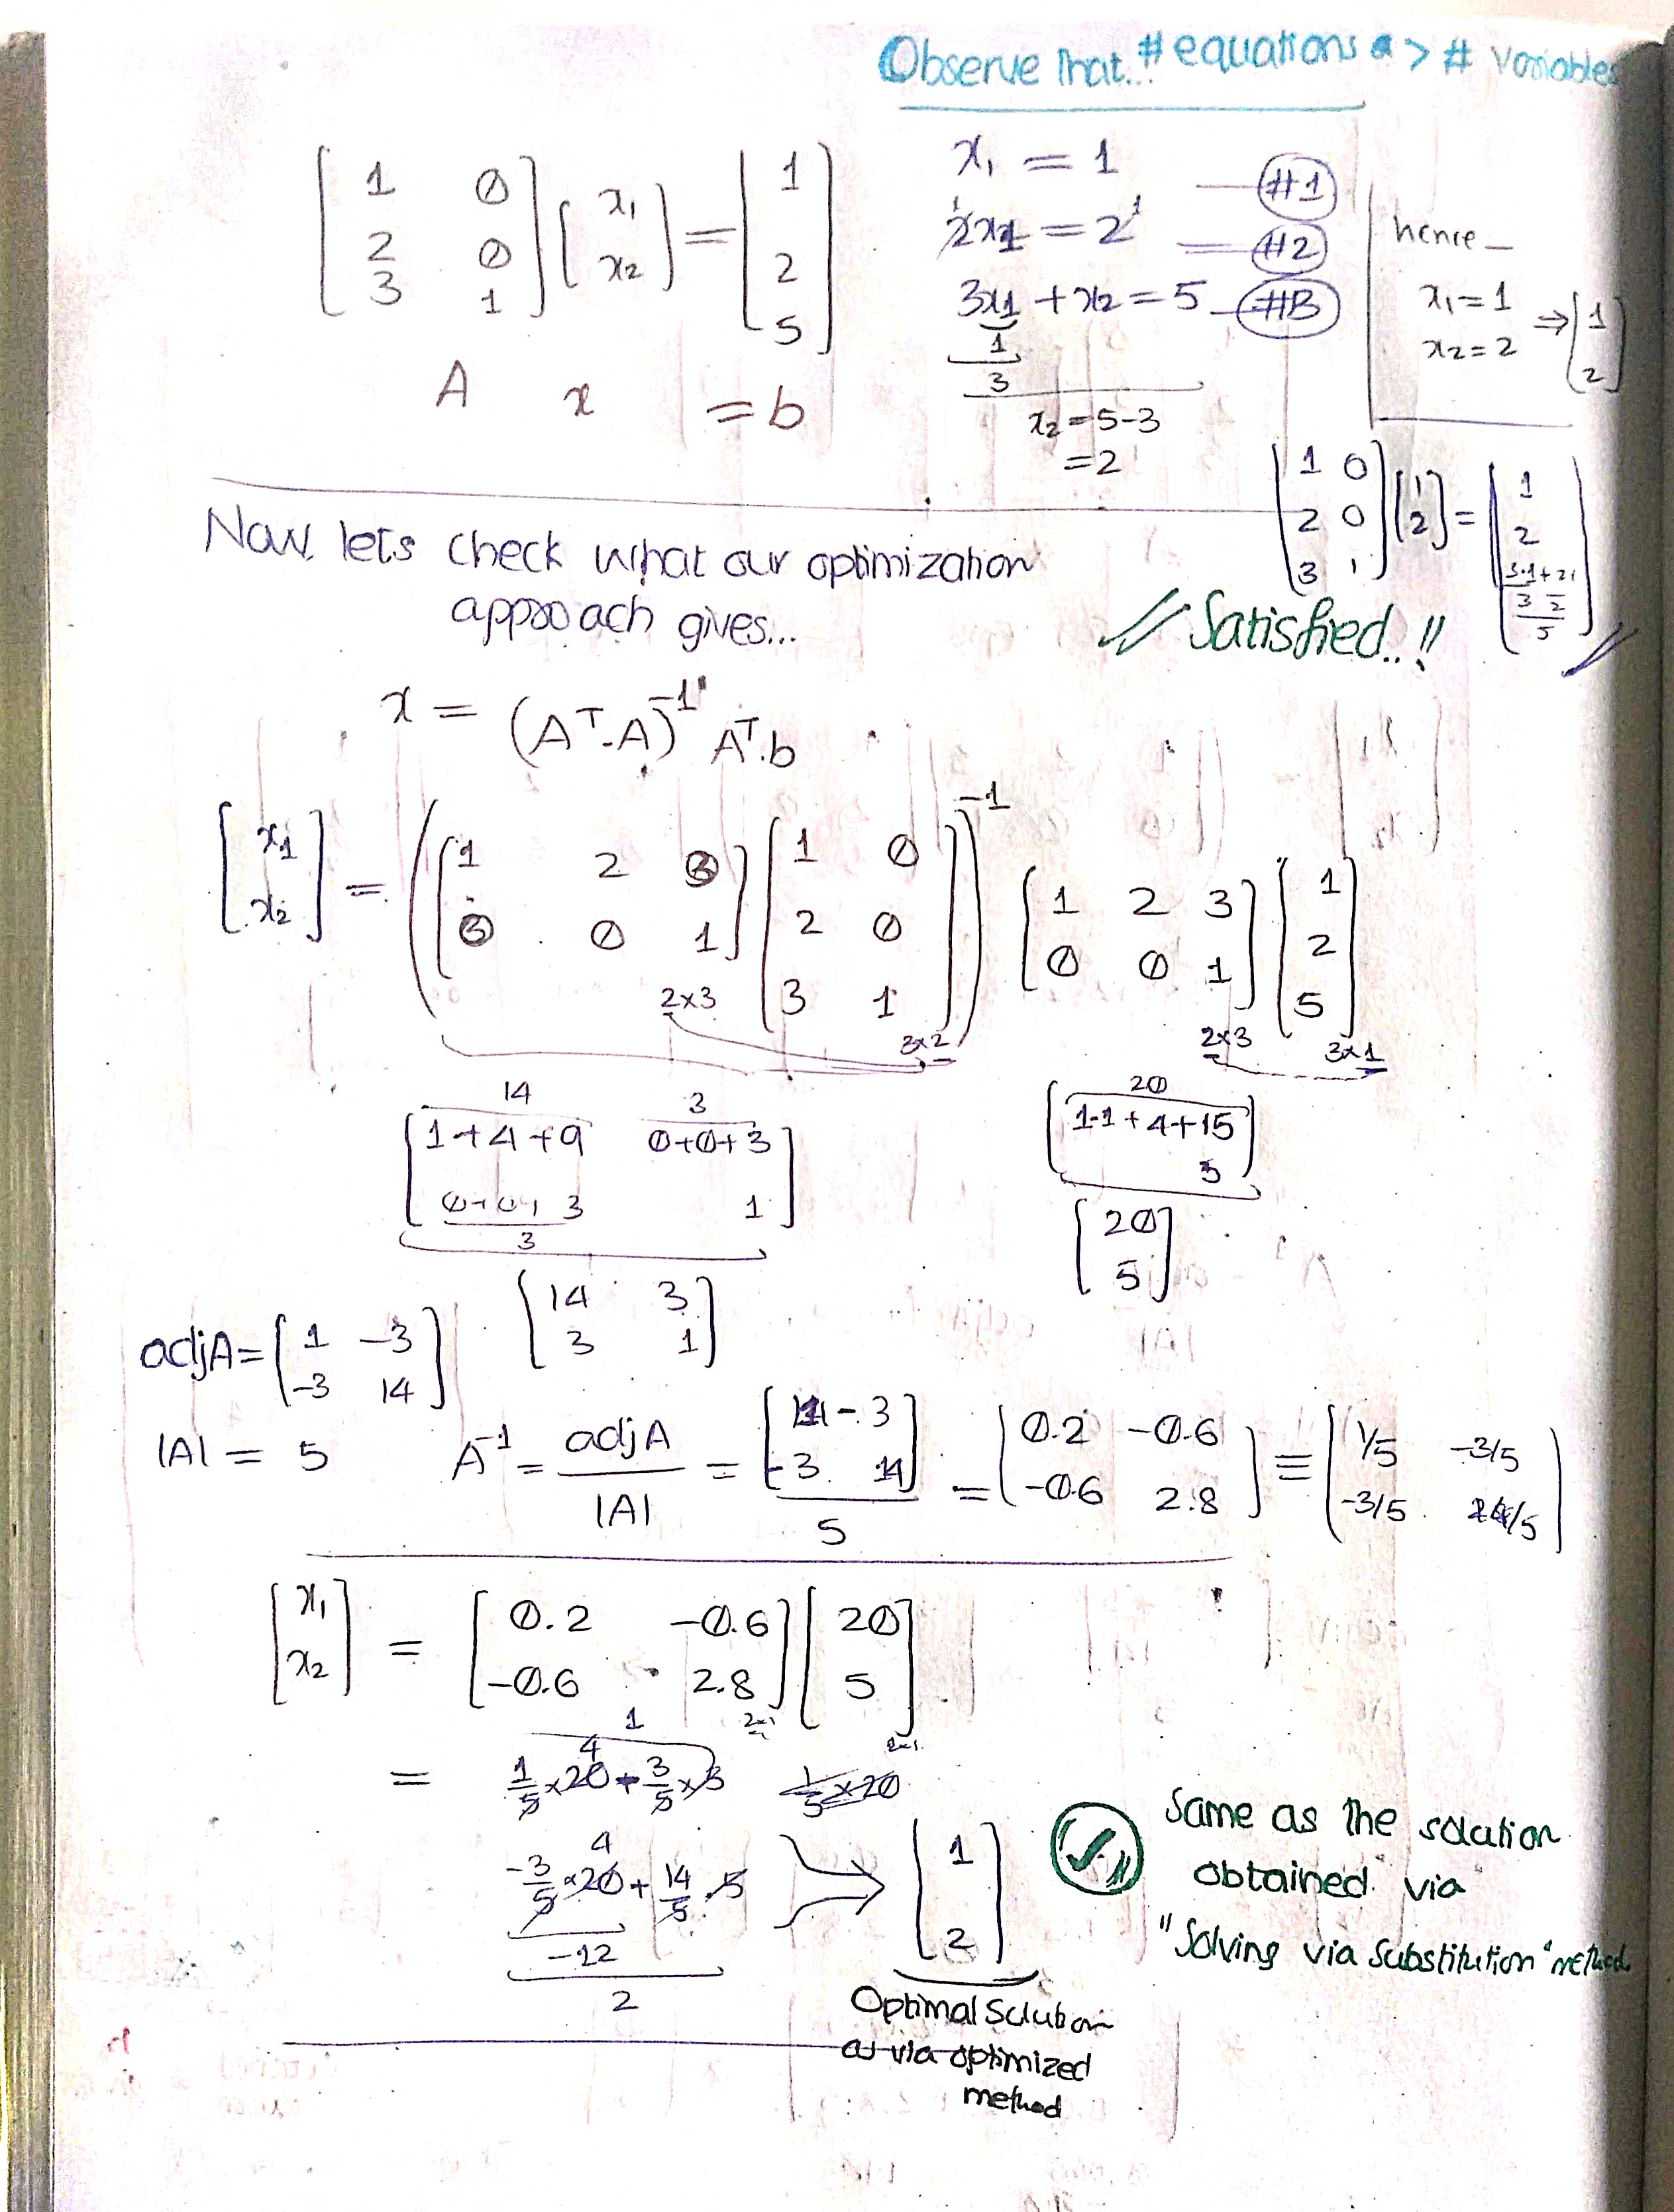 Observe that... # equations > # variables
[1 0; 2 0; 3 1] [x1; x2] = [1; 2; 5]
A x = b
x1 = 1 — #1
2x1 = 2 — #2
3x1 + x2 = 5 — #3
1
3
x2 = 5-3
= 2
hence —
x1 = 1
x2 = 2 ⇒ [1; 2]
[1 0; 2 0; 3 1] [1; 2] = [1; 2; 3·1+2·1]
3 2
5
// Satisfied..!!
Now lets check what our optimization
approach gives...
x = (A^T.A)^-1 A^T.b
[x1; x2] = ([1 2 3; 0 0 1] [1 0; 2 0; 3 1])^-1 [1 2 3; 0 0 1] [1; 2; 5]
2x3 3x2 2x3 3x1
14 3 20
[1+4+9 0+0+3; 0+0+3 1] [1·1+4+15; 5]
3
[14 3; 3 1] [20; 5]
adjA = [1 -3; -3 14]
|A| = 5 A^-1 = adjA / |A| = [1 -3; -3 14] / 5 = [0.2 -0.6; -0.6 2.8] ≡ [1/5 -3/5; -3/5 14/5]
[x1; x2] = [0.2 -0.6; -0.6 2.8] [20; 5]
1
4
= 1/5 x 20 - 3/5 x 5 1/5 x 20
4
-3/5 x 20 + 14/5 . 5 ⇒ [1; 2]
-12
2
Optimal Solution
as via optimized
method
Same as the solution
obtained via
"Solving via Substitution" method